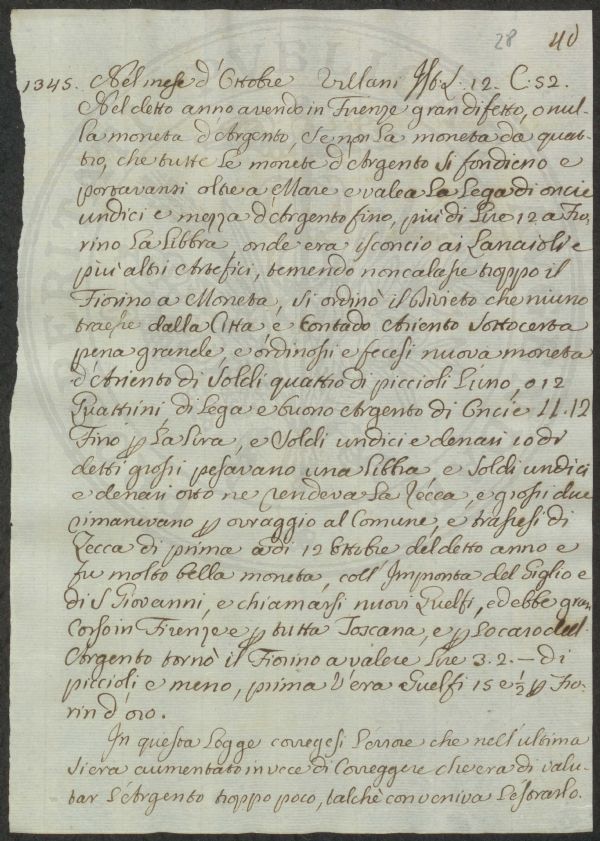 28 40
1345. Nel mese d'Ottobre Villani Hb: L. 12. C: 52.
Nel detto anno avendo in Firenze gran difetto, o nul-
la moneta d'Argento, se non La moneta da quat-
tro, che tutte Le monete d'Argento si fondieno e
portavansi oltre a Mare e valea La Lega di oncie
undici e mezza d'Argento fino, più di Lire 12 a Fio-
rino La Libbra, onde era isconcio ai Lanaioli e
più altri Artefici, temendo non calasse troppo il
Fiorino a Moneta, si ordinò il Divieto che niuno
traesse dalla Città e Contado Ariento sotto certa
pena grande, e ordinossi e fecesi nuova moneta
d'Ariento di Soldi quattro di piccioli L'uno, o 12
Quattrini di Lega e buono Argento di Oncie 11.12
Fino p La Lira, e Soldi undici e denari 10 di
detti grossi pesavano una Libbra e Soldi undici
e denari otto ne rendeva La Zecca, e grossi due
rimanevano p ovraggio al Comune, e trassesi di
Zecca di prima a di 12 Ottobre del detto anno e
fu molto bella moneta, coll'Impronta del Giglio e
di S Giovanni, e chiamarsi nuovi Guelfi, ed ebbe gran
Corso in Firenze e p tutta Toscana, e p Lo caro dell'
Argento tornò il Fiorino a valere Lire 3. 2. — di
piccioli e meno, prima v'era Guelfi 15 e ½ p Fio-
rin d'oro.
In questa Legge corregesi L'errore che nell'ultima
si era aumentato invece di Correggere che era di valu-
tar L'Argento troppo poco, talchè conveniva Lestrarlo.